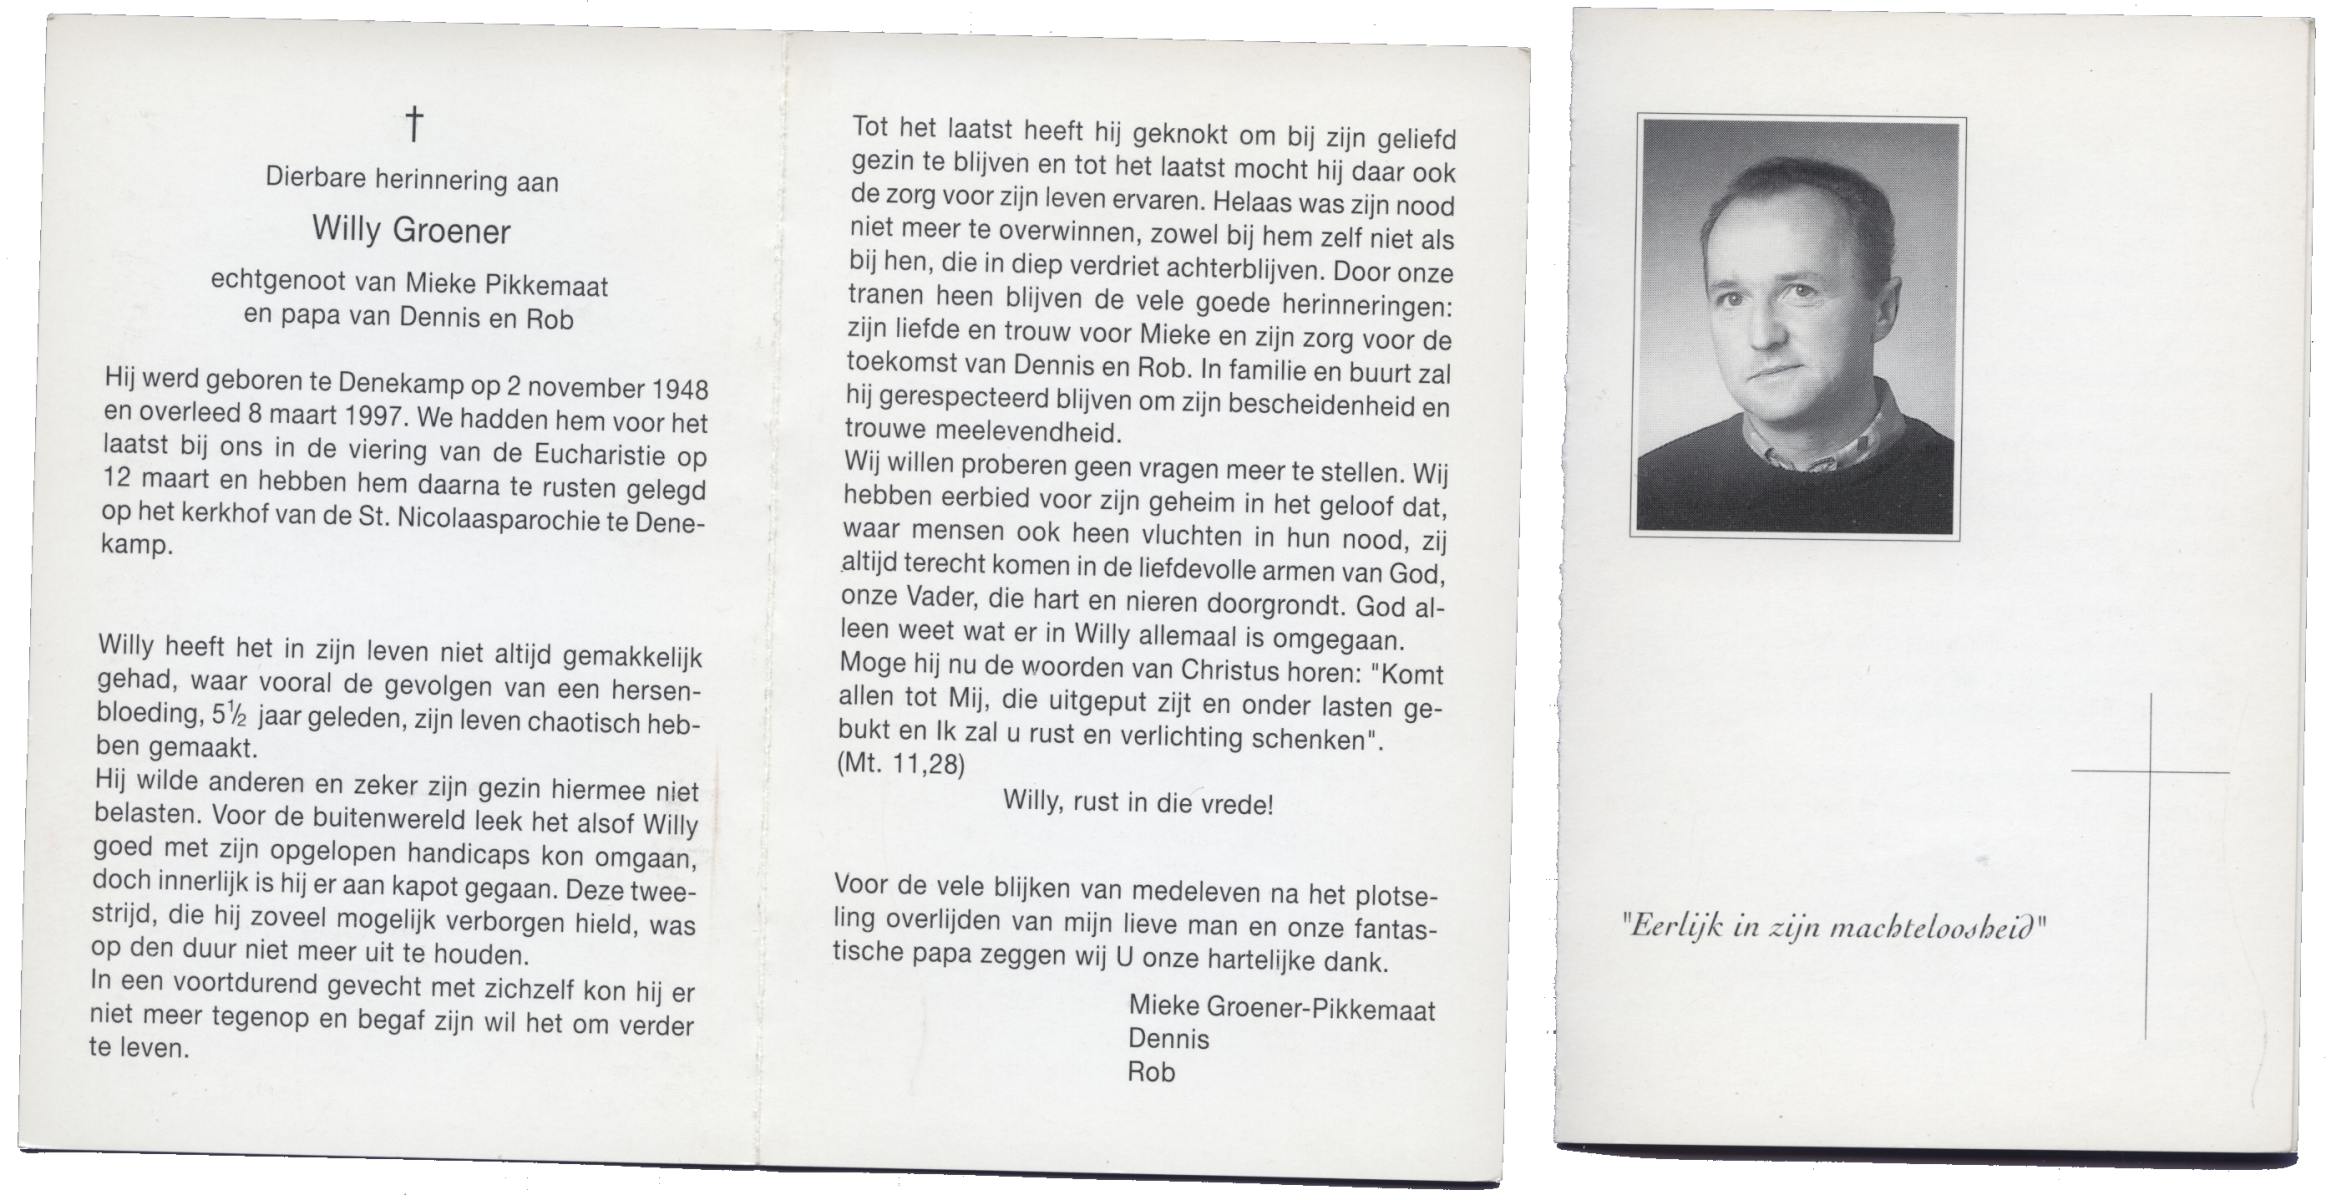 †
Dierbare herinnering aan
Willy Groener
echtgenoot van Mieke Pikkemaat
en papa van Dennis en Rob
Hij werd geboren te Denekamp op 2 november 1948
en overleed 8 maart 1997. We hadden hem voor het
laatst bij ons in de viering van de Eucharistie op
12 maart en hebben hem daarna te rusten gelegd
op het kerkhof van de St. Nicolaasparochie te Dene-
kamp.
Willy heeft het in zijn leven niet altijd gemakkelijk
gehad, waar vooral de gevolgen van een hersen-
bloeding, 5½ jaar geleden, zijn leven chaotisch heb-
ben gemaakt.
Hij wilde anderen en zeker zijn gezin hiermee niet
belasten. Voor de buitenwereld leek het alsof Willy
goed met zijn opgelopen handicaps kon omgaan,
doch innerlijk is hij er aan kapot gegaan. Deze twee-
strijd, die hij zoveel mogelijk verborgen hield, was
op den duur niet meer uit te houden.
In een voortdurend gevecht met zichzelf kon hij er
niet meer tegenop en begaf zijn wil het om verder
te leven.
Tot het laatst heeft hij geknokt om bij zijn geliefd
gezin te blijven en tot het laatst mocht hij daar ook
de zorg voor zijn leven ervaren. Helaas was zijn nood
niet meer te overwinnen, zowel bij hem zelf niet als
bij hen, die in diep verdriet achterblijven. Door onze
tranen heen blijven de vele goede herinneringen:
zijn liefde en trouw voor Mieke en zijn zorg voor de
toekomst van Dennis en Rob. In familie en buurt zal
hij gerespecteerd blijven om zijn bescheidenheid en
trouwe meelevendheid.
Wij willen proberen geen vragen meer te stellen. Wij
hebben eerbied voor zijn geheim in het geloof dat,
waar mensen ook heen vluchten in hun nood, zij
altijd terecht komen in de liefdevolle armen van God,
onze Vader, die hart en nieren doorgrondt. God al-
leen weet wat er in Willy allemaal is omgegaan.
Moge hij nu de woorden van Christus horen: "Komt
allen tot Mij, die uitgeput zijt en onder lasten ge-
bukt en Ik zal u rust en verlichting schenken".
(Mt. 11,28)
Willy, rust in die vrede!
Voor de vele blijken van medeleven na het plotse-
ling overlijden van mijn lieve man en onze fantas-
tische papa zeggen wij U onze hartelijke dank.
Mieke Groener-Pikkemaat
Dennis
Rob
"Eerlijk in zijn machteloosheid"